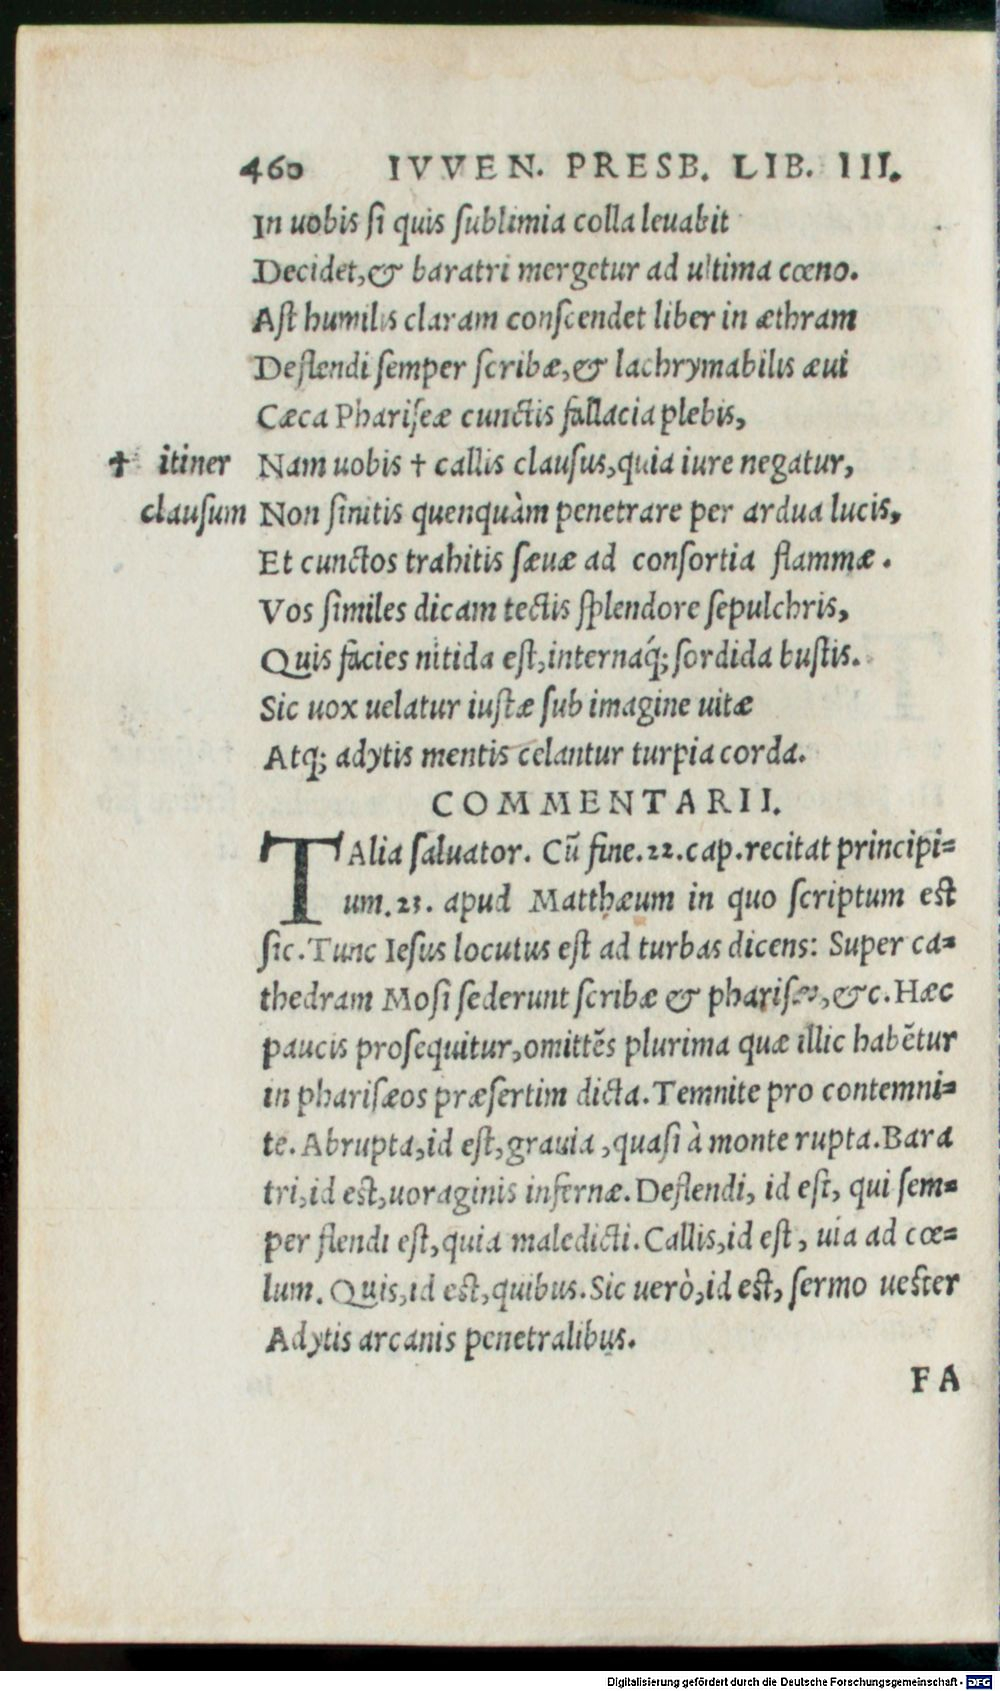 460 IVVEN. PRESB. LIB. III.
In uobis ſi quis ſublimia colla leuabit
Decidet,& baratri mergetur ad ultima cœno.
Aſt humilis claram conſcendet liber in æthram
Deflendi ſemper ſcribæ,& lachrymabilis æui
Cæca Phariſeæ cunctis fallacia plebis,
✝ itiner Nam uobis † callis clauſus,quia iure negatur,
clauſum Non ſinitis quenquàm penetrare per ardua lucis,
Et cunctos trahitis ſæuæ ad conſortia flammæ.
Vos ſimiles dicam tectis ſplendore ſepulchris,
Quis facies nitida eſt,internaq́; ſordida buſtis.
Sic uox uelatur iuſtæ ſub imagine uitæ
Atq; adytis mentis celantur turpia corda.
COMMENTARII.
TAlia ſaluator. Cũ fine.22.cap.recitat principi=
um.23. apud Matthæum in quo ſcriptum eſt
ſic.Tunc Ieſus locutus eſt ad turbas dicens: Super ca=
thedram Moſi ſederunt ſcribæ & phariſei,&c.Hæc
paucis proſequitur,omittẽs plurima quæ illic habẽtur
in phariſæos præſertim dicta.Temnite pro contemni=
te.Abrupta,id eſt,grauia,quaſi à monte rupta.Bara
tri,id eſt,uoraginis infernæ.Deflendi, id eſt, qui ſem=
per flendi eſt,quia maledicti.Callis,id eſt, uia ad cœ=
lum. Quis,id eſt,quibus.Sic uerò,id eſt, ſermo ueſter
Adytis arcanis penetralibus.
FA
Digitalisierung gefördert durch die Deutsche Forschungsgemeinschaft - DFG